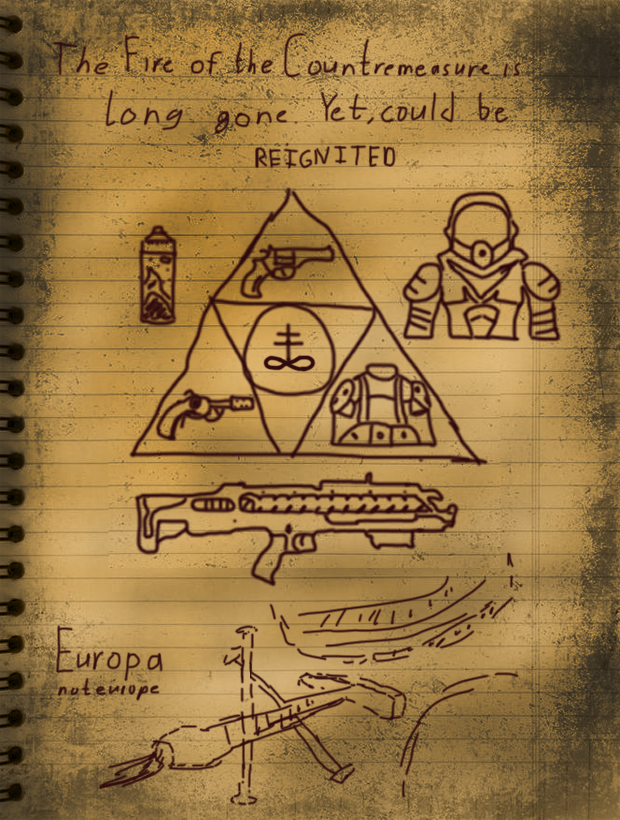 The Fire of the Countremeasure is
Long gone. Yet, could be
REIGNITED
Europa
not europe